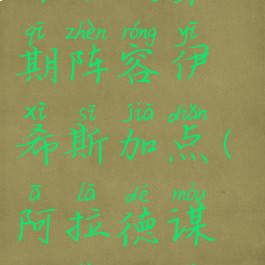 qī zhèn róng yī
期阵容伊
xī sī jiā diǎn
希斯加点(
ā lā dé móu
阿拉德谋